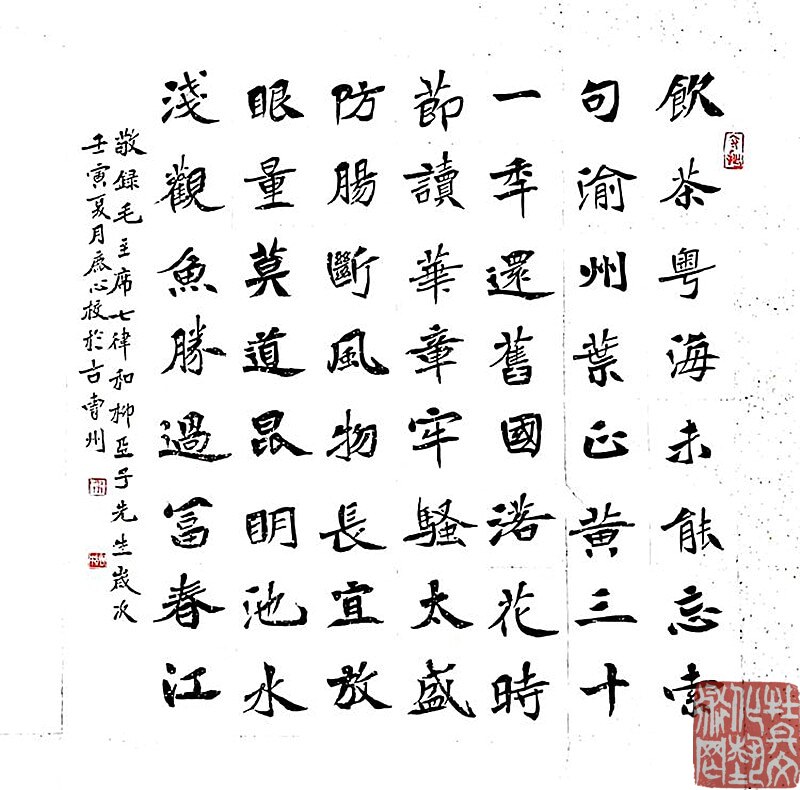 飲茶粤海未能忘索
句渝州葉正黄三十
一秊還舊國落花時
節讀華章牢騷太盛
防腸斷風物長宜放
眼量莫道昆明池水
淺觀魚勝過冨春江
敬録毛主席七律和柳亞子先生歲次
壬寅夏月心校於古曹州